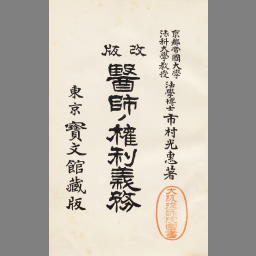 京都帝國大學
法科大學教授
法學博士市村光惠著
改版
醫師ノ權利義務
東京寳文館藏版